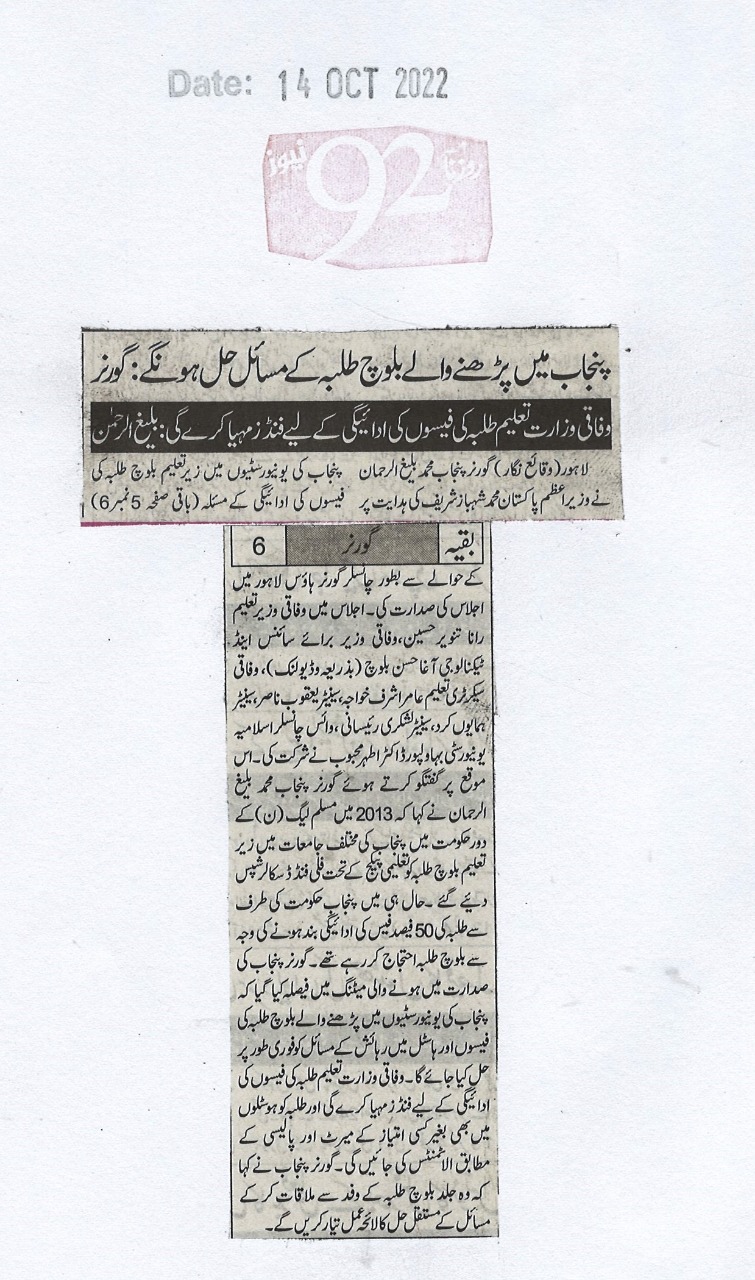 Date: 14 OCT 2022
روزنامہ 92 نیوز
پنجاب میں پڑھنے والے بلوچ طلبہ کے مسائل حل ہونگے: گورنر
وفاقی وزارت تعلیم طلبہ کی فیسوں کی ادائیگی کے لیے فنڈز مہیا کرے گی: بلیغ الرحمٰن
لاہور (وقائع نگار) گورنر پنجاب محمد بلیغ الرحمان
نے وزیراعظم پاکستان محمد شہباز شریف کی ہدایت پر
پنجاب کی یونیورسٹیوں میں زیر تعلیم بلوچ طلبہ کی
فیسوں کی ادائیگی کے مسئلہ (باقی صفحہ 5 نمبر 6)
بقیہ گورنر 6
کے حوالے سے بطور چانسلر گورنر ہاؤس لاہور میں
اجلاس کی صدارت کی۔ اجلاس میں وفاقی وزیر تعلیم
رانا تنویر حسین، وفاقی وزیر برائے سائنس اینڈ
ٹیکنالوجی آغا حسن بلوچ (بذریعہ وڈیو لنک)، وفاقی
سیکرٹری تعلیم عامر اشرف خواجہ، سینیٹر یعقوب ناصر، سینیٹر
ہمایوں کرد، سینیٹر لشکری رئیسانی، وائس چانسلر اسلامیہ
یونیورسٹی بہاولپور ڈاکٹر اطہر محبوب نے شرکت کی۔ اس
موقع پر گفتگو کرتے ہوئے گورنر پنجاب محمد بلیغ
الرحمان نے کہا کہ 2013 میں مسلم لیگ (ن) کے
دور حکومت میں پنجاب کی مختلف جامعات میں زیر
تعلیم بلوچ طلبہ کو تعلیمی پیکج کے تحت فلی فنڈڈ سکالرشپس
دیئے گئے۔ حال ہی میں پنجاب حکومت کی طرف
سے طلبہ کی 50 فیصد فیس کی ادائیگی بند ہونے کی وجہ
سے بلوچ طلبہ احتجاج کر رہے تھے۔ گورنر پنجاب کی
صدارت میں ہونے والی میٹنگ میں فیصلہ کیا گیا کہ
پنجاب کی یونیورسٹیوں میں پڑھنے والے بلوچ طلبہ کی
فیسوں اور ہاسٹل میں رہائش کے مسائل کو فوری طور پر
حل کیا جائے گا۔ وفاقی وزارت تعلیم طلبہ کی فیسوں کی
ادائیگی کے لیے فنڈز مہیا کرے گی اور طلبہ کو ہوسٹلوں
میں بھی بغیر کسی امتیاز کے میرٹ اور پالیسی کے
مطابق الاٹمنٹس کی جائیں گی۔ گورنر پنجاب نے کہا
کہ وہ جلد بلوچ طلبہ کے وفد سے ملاقات کر کے
مسائل کے مستقل حل کا لائحہ عمل تیار کریں گے۔